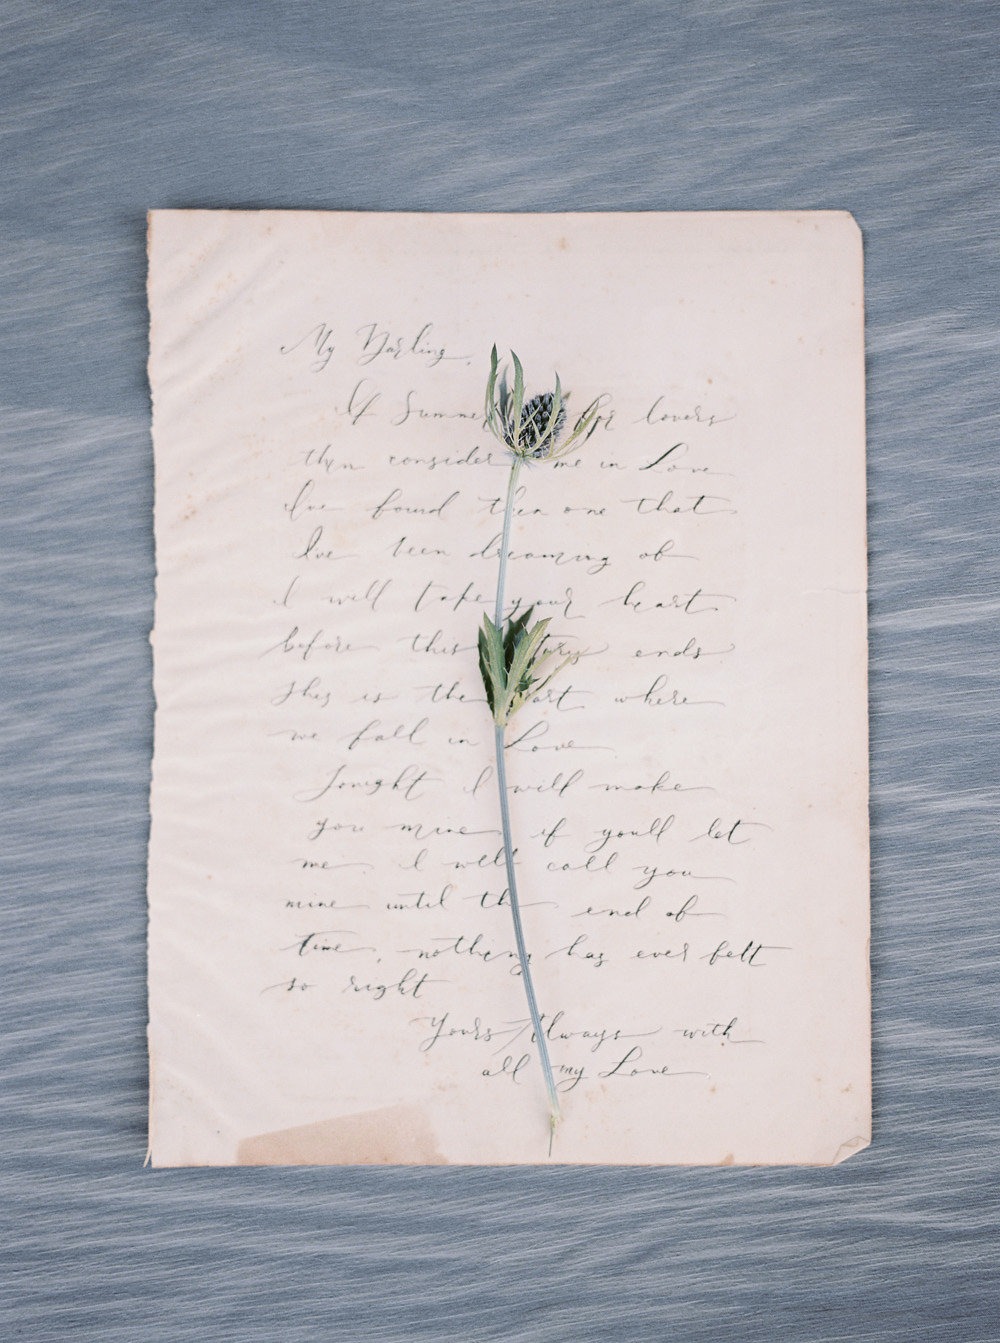 My Darling,
If Summer for lovers
then consider me in Love
I've found then one that
I've been dreaming of
I will take your heart
before this ends
This is the part where
we fall in Love
Tonight I will make
you mine if you'll let
me. I will call you
mine until the end of
time, nothing has ever felt
so right
Yours Always with
all my Love